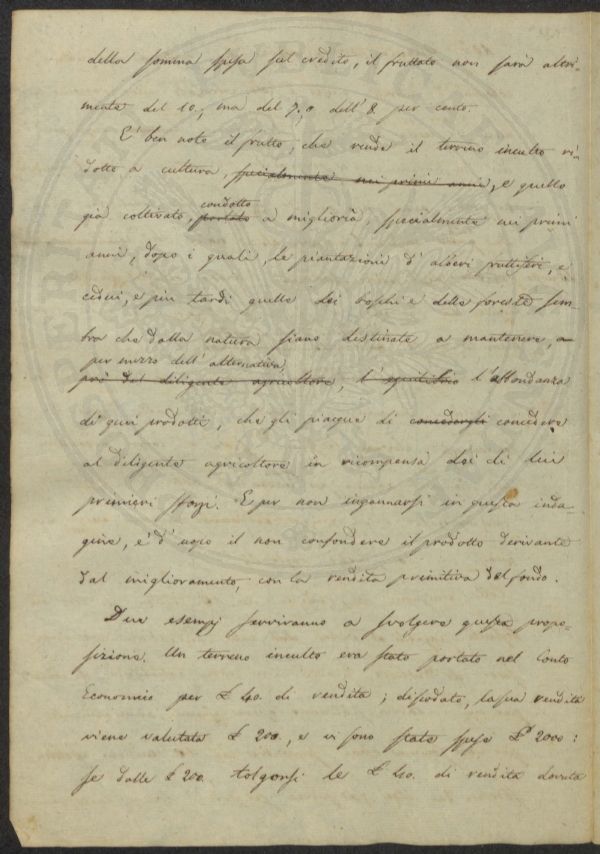 della somma spesa sul credito, il fruttato non sarà altri-
mente del 10., ma del 7. o dell' 8 per cento.
E' ben noto il frutto, che rende il terreno inculto ri-
dotto a cultura, specialmente nei primi anni, e quello
già coltivato, portato condotto a miglioria, specialmente nei primi
anni, dopo i quali, le piantazioni d' alberi fruttiferi, e
cedui, e più tardi quelle dei boschi e delle foreste sem-
bra che dalla natura siano destinate a mantenere, a
per mezzo dell' alternativa,
prò del diligente agricoltore, l' equilibrio l'abbondanza
di quei prodotti, che gli piacque di concedergli concedere
al diligente agricoltore in ricompensa dei di lui
primieri sforzi. E per non ingannarsi in questa inda-
gine, è d' uopo il non confondere il prodotto derivante
dal miglioramento, con la rendita primitiva del fondo.
Due esempj serviranno a svolgere questa propo-
sizione. Un terreno inculto era stato portato nel Conto
Economico per £ 40. di rendita; dissodato, la sua rendita
viene valutata £ 200., e vi sono state spese £ 2000:
se dalle £ 200. tolgonsi le £ 40. di rendita dovuta